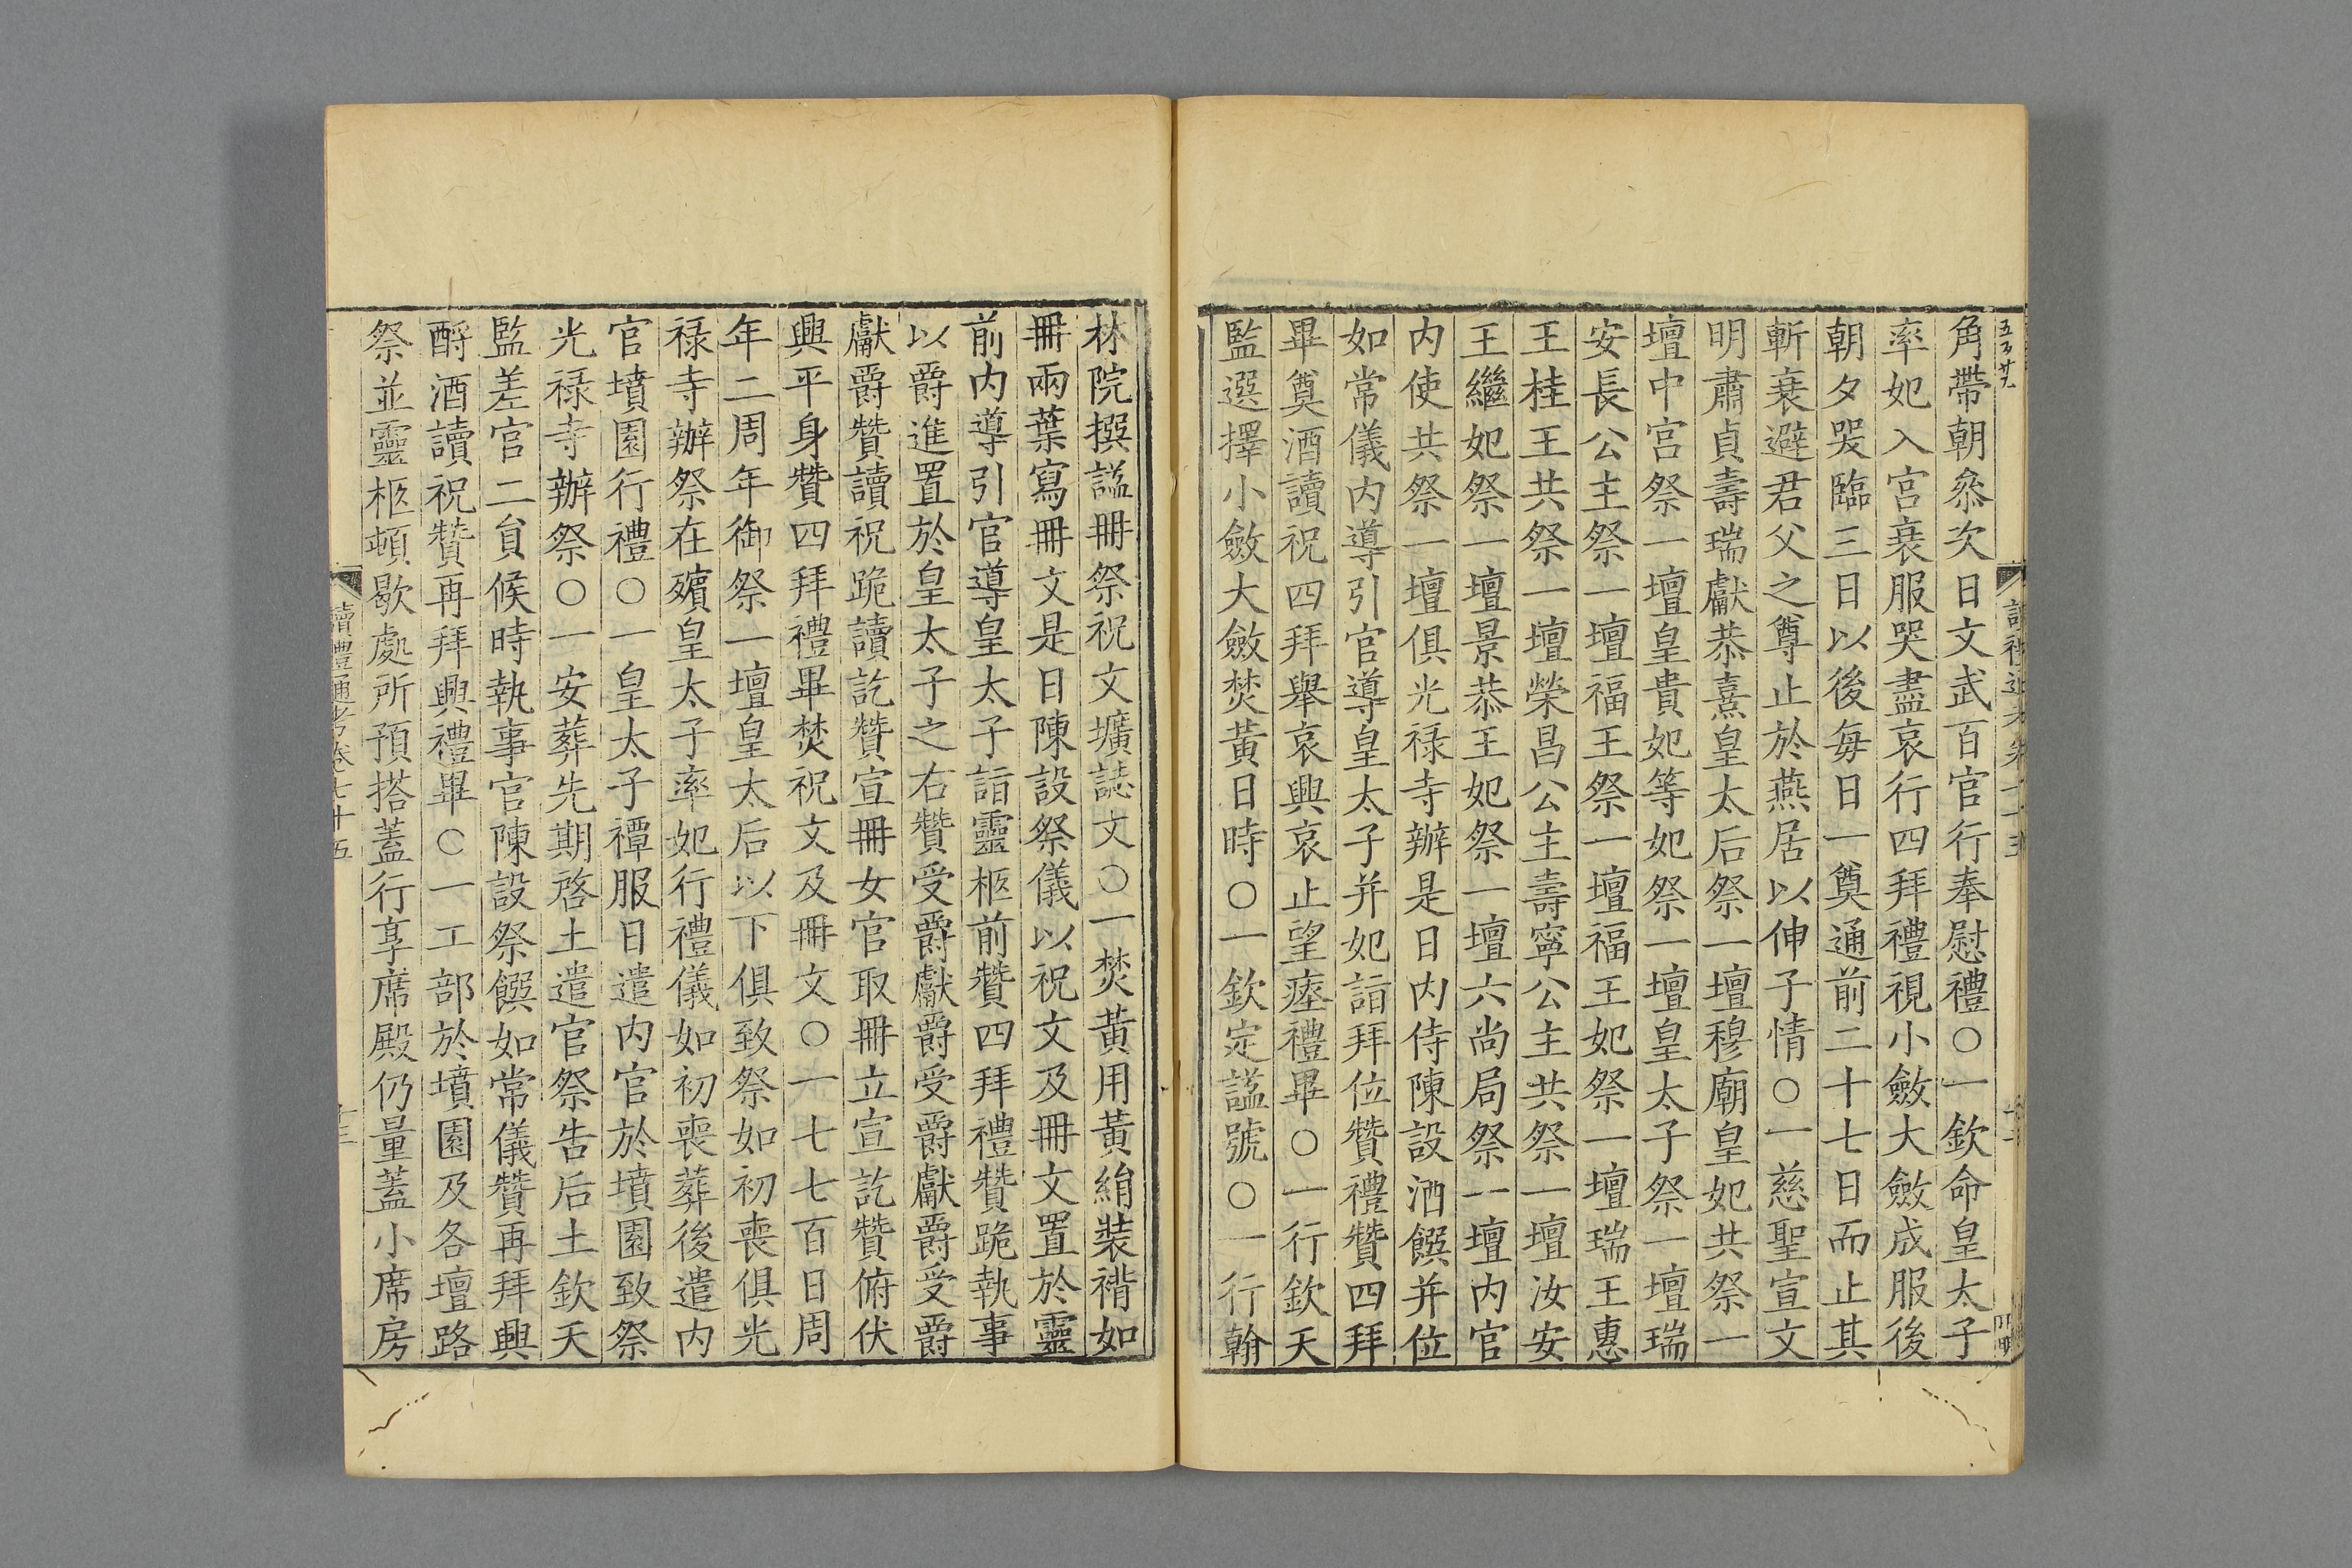 角帶朝叅次日文武百官行奉慰禮○一欽命皇太子
率妃入宮衰服哭盡哀行四拜禮視小斂大斂成服後
朝夕哭臨三日以後每日一奠通前二十七日而止其
斬衰避君父之尊止於燕居以伸子情○一慈聖宣文
明肅貞壽瑞獻恭熹皇太后祭一壇穆廟皇妃共祭一
壇中宮祭一壇皇貴妃等妃祭一壇皇太子祭一壇瑞
安長公主祭一壇福王祭一壇福王妃祭一壇瑞王惠
王桂王共祭一壇榮昌公主壽寧公主共祭一壇汝安
王繼妃祭一壇景恭王妃祭一壇六尚局祭一壇內官
內使共祭一壇俱光禄寺辦是日內侍陳設酒饌并位
如常儀內導引官導皇太子并妃詣拜位贊禮贊四拜
畢奠酒讀祝四拜舉哀興哀止望瘞禮畢○一行欽天
監選擇小斂大斂焚黃日時○一欽定諡號○一行翰
林院撰諡冊祭祝文壙誌文○一焚黃用黃絹裝褙如
冊兩葉寫冊文是日陳設祭儀以祝文及冊文置於靈
前內導引官導皇太子詣靈柩前贊四拜禮贊跪執事
以爵進置於皇太子之右贊受爵獻爵受爵獻爵受爵
獻爵贊讀祝跪讀訖贊宣冊女官取冊立宣訖贊俯伏
興平身贊四拜禮畢焚祝文及冊文○一七七百日周
年二周年御祭一壇皇太后以下俱致祭如初喪俱光
禄寺辦祭在殯皇太子率妃行禮儀如初喪葬後遣內
官墳園行禮○一皇太子禫服日遣內官於墳園致祭
光禄寺辦祭○一安葬先期啓土遣官祭告后土欽天
監差官二員候時執事官陳設祭饌如常儀贊再拜興
酹酒讀祝贊再拜興禮畢○一工部於墳園及各壇路
祭並靈柩頓歇處所預搭蓋行享席殿仍量蓋小席房
讀禮通考卷七十五